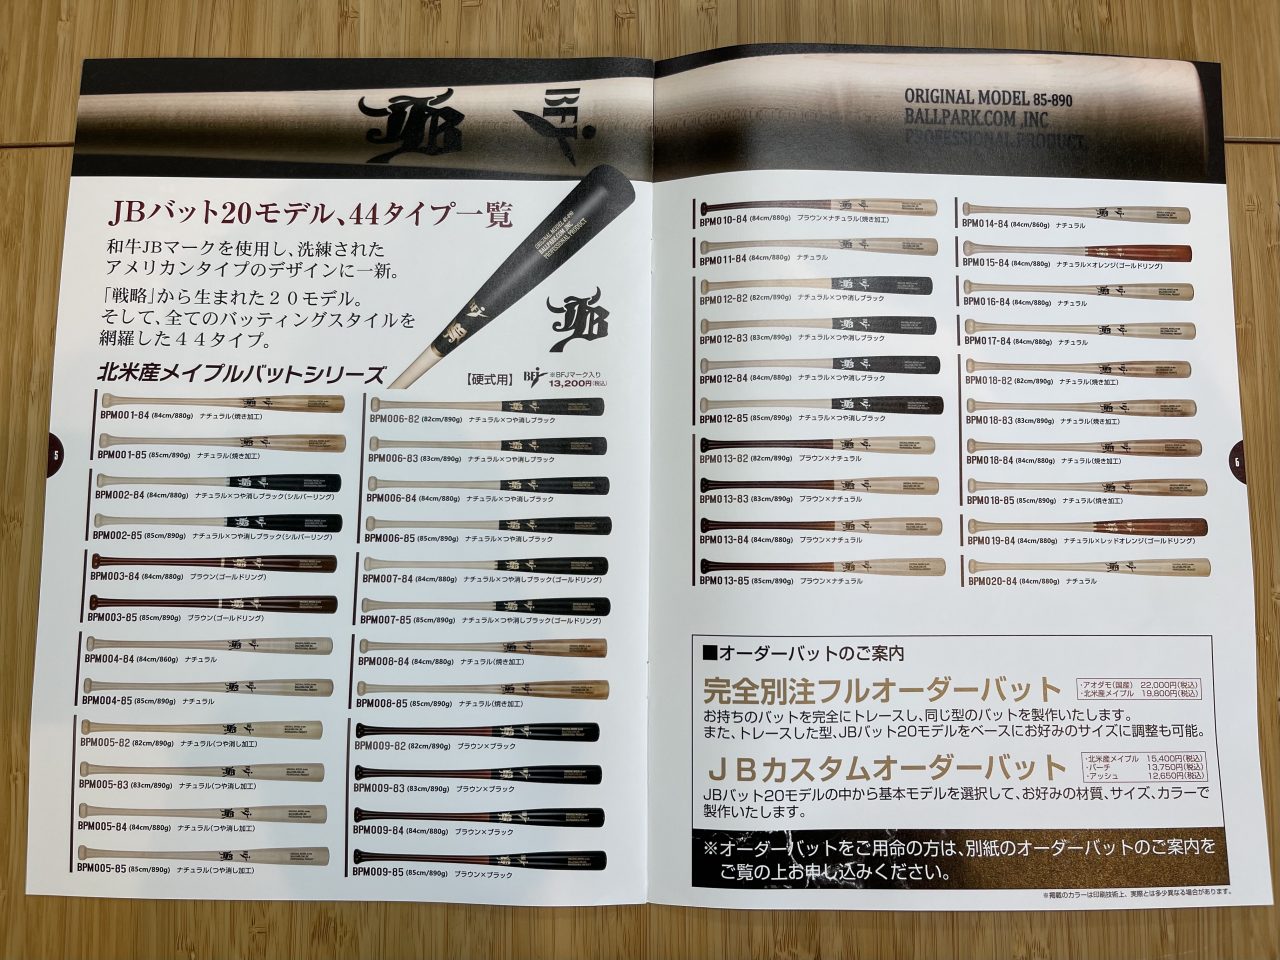 JB
BFJ
ORIGINAL MODEL 85-890
BALLPARK.COM ,INC
PROFESSIONAL PRODUCT
JBバット20モデル、44タイプ一覧
和牛JBマークを使用し、洗練された
アメリカンタイプのデザインに一新。
「戦略」から生まれた２０モデル。
そして、全てのバッティングスタイルを
網羅した４４タイプ。
JB
北米産メイプルバットシリーズ
【硬式用】 BFJ ※BFJマーク入り
13,200円(税込)
BPM001-84 (84cm/880g) ナチュラル(焼き加工)
BPM001-85 (85cm/890g) ナチュラル(焼き加工)
BPM002-84 (84cm/880g) ナチュラル×つや消しブラック(シルバーリング)
BPM002-85 (85cm/890g) ナチュラル×つや消しブラック(シルバーリング)
BPM003-84 (84cm/880g) ブラウン(ゴールドリング)
BPM003-85 (85cm/890g) ブラウン(ゴールドリング)
BPM004-84 (84cm/860g) ナチュラル
BPM004-85 (85cm/890g) ナチュラル
BPM005-82 (82cm/890g) ナチュラル(つや消し加工)
BPM005-83 (83cm/890g) ナチュラル(つや消し加工)
BPM005-84 (84cm/880g) ナチュラル(つや消し加工)
BPM005-85 (85cm/890g) ナチュラル(つや消し加工)
BPM006-82 (82cm/890g) ナチュラル×つや消しブラック
BPM006-83 (83cm/890g) ナチュラル×つや消しブラック
BPM006-84 (84cm/880g) ナチュラル×つや消しブラック
BPM006-85 (85cm/890g) ナチュラル×つや消しブラック
BPM007-84 (84cm/880g) ナチュラル×つや消しブラック(ゴールドリング)
BPM007-85 (85cm/890g) ナチュラル×つや消しブラック(ゴールドリング)
BPM008-84 (84cm/880g) ナチュラル(焼き加工)
BPM008-85 (85cm/890g) ナチュラル(焼き加工)
BPM009-82 (82cm/890g) ブラウン×ブラック
BPM009-83 (83cm/890g) ブラウン×ブラック
BPM009-84 (84cm/880g) ブラウン×ブラック
BPM009-85 (85cm/890g) ブラウン×ブラック
5
BPM010-84 (84cm/880g) ブラウン×ナチュラル(焼き加工)
BPM011-84 (84cm/880g) ナチュラル
BPM012-82 (82cm/890g) ナチュラル×つや消しブラック
BPM012-83 (83cm/890g) ナチュラル×つや消しブラック
BPM012-84 (84cm/880g) ナチュラル×つや消しブラック
BPM012-85 (85cm/890g) ナチュラル×つや消しブラック
BPM013-82 (82cm/890g) ブラウン×ナチュラル
BPM013-83 (83cm/890g) ブラウン×ナチュラル
BPM013-84 (84cm/880g) ブラウン×ナチュラル
BPM013-85 (85cm/890g) ブラウン×ナチュラル
BPM014-84 (84cm/860g) ナチュラル
BPM015-84 (84cm/880g) ナチュラル×オレンジ(ゴールドリング)
BPM016-84 (84cm/880g) ナチュラル
BPM017-84 (84cm/880g) ナチュラル
BPM018-82 (82cm/890g) ナチュラル(焼き加工)
BPM018-83 (83cm/890g) ナチュラル(焼き加工)
BPM018-84 (84cm/880g) ナチュラル(焼き加工)
BPM018-85 (85cm/890g) ナチュラル(焼き加工)
BPM019-84 (84cm/880g) ナチュラル×レッドオレンジ(ゴールドリング)
BPM020-84 (84cm/880g) ナチュラル
6
■オーダーバットのご案内
完全別注フルオーダーバット
・アオダモ(国産) 22,000円(税込)
・北米産メイプル 19,800円(税込)
お持ちのバットを完全にトレースし、同じ型のバットを製作いたします。
また、トレースした型、JBバット20モデルをベースにお好みのサイズに調整も可能。
ＪＢカスタムオーダーバット
・北米産メイプル 15,400円(税込)
・バーチ 13,750円(税込)
・アッシュ 12,650円(税込)
JBバット20モデルの中から基本モデルを選択して、お好みの材質、サイズ、カラーで
製作いたします。
※オーダーバットをご用命の方は、別紙のオーダーバットのご案内を
ご覧の上お申し込みください。
※掲載のカラーは印刷技術上、実際とは多少異なる場合があります。